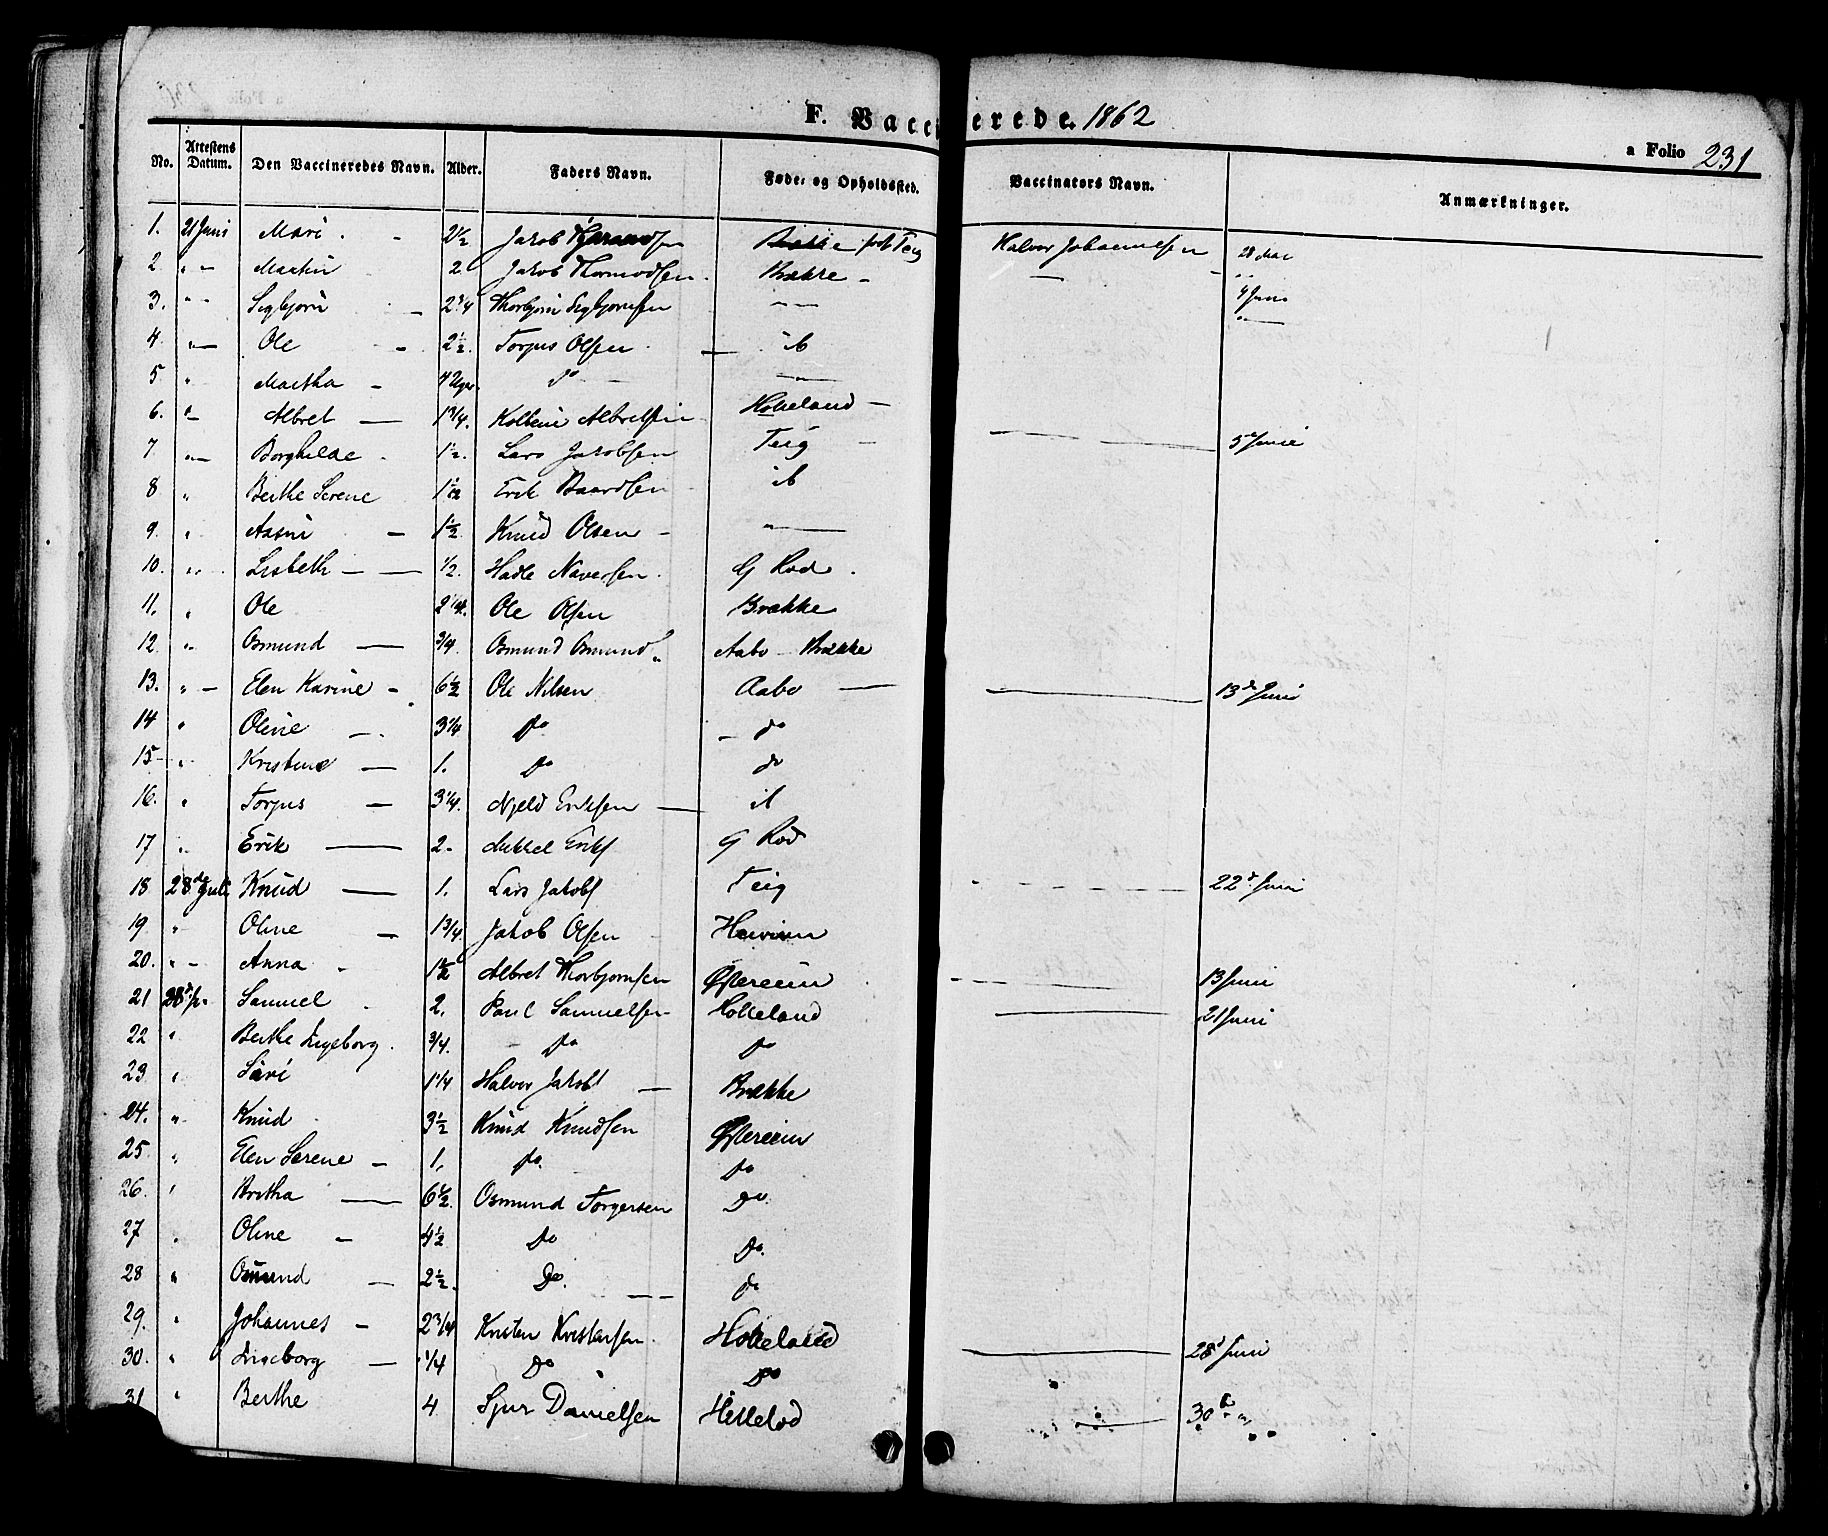 F. Vaccinerede. 1862
a Folio 231
No. Attestens Datum. Den Vaccineredes Navn. Alder. Faders Navn. Føde- og Opholdssted. Vaccinators Navn. Anmærkninger.
1. 21 Juni Mari 2½ Jakob Teig Halvor Johannessen 28 Mai
2 " Martin 2 Jakob Thormodsen Brække —
3. " Sigbjørn 2¾ Thorbjørn Sigbjørnsen — 4 Juni
4. " Ole 2½ Torjus Olsen ib
5 " Martha 4 Uger do —
6. " Albret 1¾ Kolbein Albretsen Hokeland —
7. " Borghilde 1½ Lars Jakobsen Teig — 5 Juni
8 " Berthe Serene 1½ Erik Baardsen ib
9. " Aasni 1½ Knud Olsen —
10. " Lisbeth ½ Hadle Naversen G Rød
11. " Ole 2¼ Ole Olsen Brække
12. " Osmund ¾ Osmund Osmunds Aabo Brække
13. " Elen Karine 6½ Ole Nilsen Aabo — 13 Juni
14 " Oline 3¼ do do
15 " Kristine 1. do do
16. " Torjus 3¼ Njeld Eriksen ib
17 " Erik 2 Mikkel Eriks G Rød
18 28de Juli Knud 1. Lars Jakobs Teig — 22 Juni
19. " Oline 1¾ Jakob Olsen
20. " Anna 1½ Albret Thorbjørnsen Østereim — 13 Juni
21 28 Samuel 2. Paul Samuelsen Hokeland — 21 Juni
22 " Berthe Ingeborg ¾ do do
23 " Siri 1¼ Halvor Jakobs Brække
24. " Knud 3½ Knud Knudsen Østereim
25 " Elen Serene 1. do do
26. " Britha 6½ Osmund Torgersen Do
27 " Oline 4½ Do Do.
28 " Osmund 2½ Do. do
29. " Johannes 2¾ Kristen Kristensen Hokeland
30. " Ingeborg ¼ Do Do — 28 Juni
31 " Berthe 4 Sjur Danielsen — 30